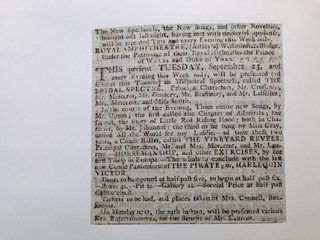 The New Spectacle, the New Songs, and other Novelties,
brought out last night, having met with universal applause,
will be repeated This and every Evening this Week only.
ROYAL AMPHITHEATRE, (Astley's) Westminster-Bridge.
Under the Patronage of their Royal Highnesses the Prince
of Wales and Duke of York.
THIS present TUESDAY, September 23, and
every Evening this Week only, will be presented (
that Time) an Historical Spectacle, called THE
SPIDAL SPECTRE. Princ. Characters, Mr. Crossman,
Mr. Montrot, Mr. Bradbury, and Mr. Lassells,
Mrs. Montrot, and Miss Smith.
In the course of the Evening, Three entire new Songs, by
Mr. Upton; the first called the Chapter of Admirals; the
second, the Story of Little Red Riding Hood; both in Cha-
racter, by Mr. Johannot: the third to be sung by Miss Gray,
called All the World for my Laddie. 2d time these two
years, a Comic Ballet, called THE VINEYARD REVELS.
Principal Characters, Mr. and Mrs. Montrot, and Mr. Lau-
rent.—HORSEMANSHIP, and other EXERCISES, by the
first Troop in Europe.—The whole to conclude with the last
new Comic Pantomime of THE PIRATE; or, HARLEQUIN
VICTOR.
Doors to be opened at half past five, to begin at half past six.
—Boxes 4s.—Pit 2s.—Gallery 1s.—Second Price at half past
eight o'clock.
Tickets to be had, and places taken of Mrs. Connell, Box-
keeper.
On Monday next, the 29th instant, will be presented various
New Entertainments, for the Benefit of Mr. Laurent.